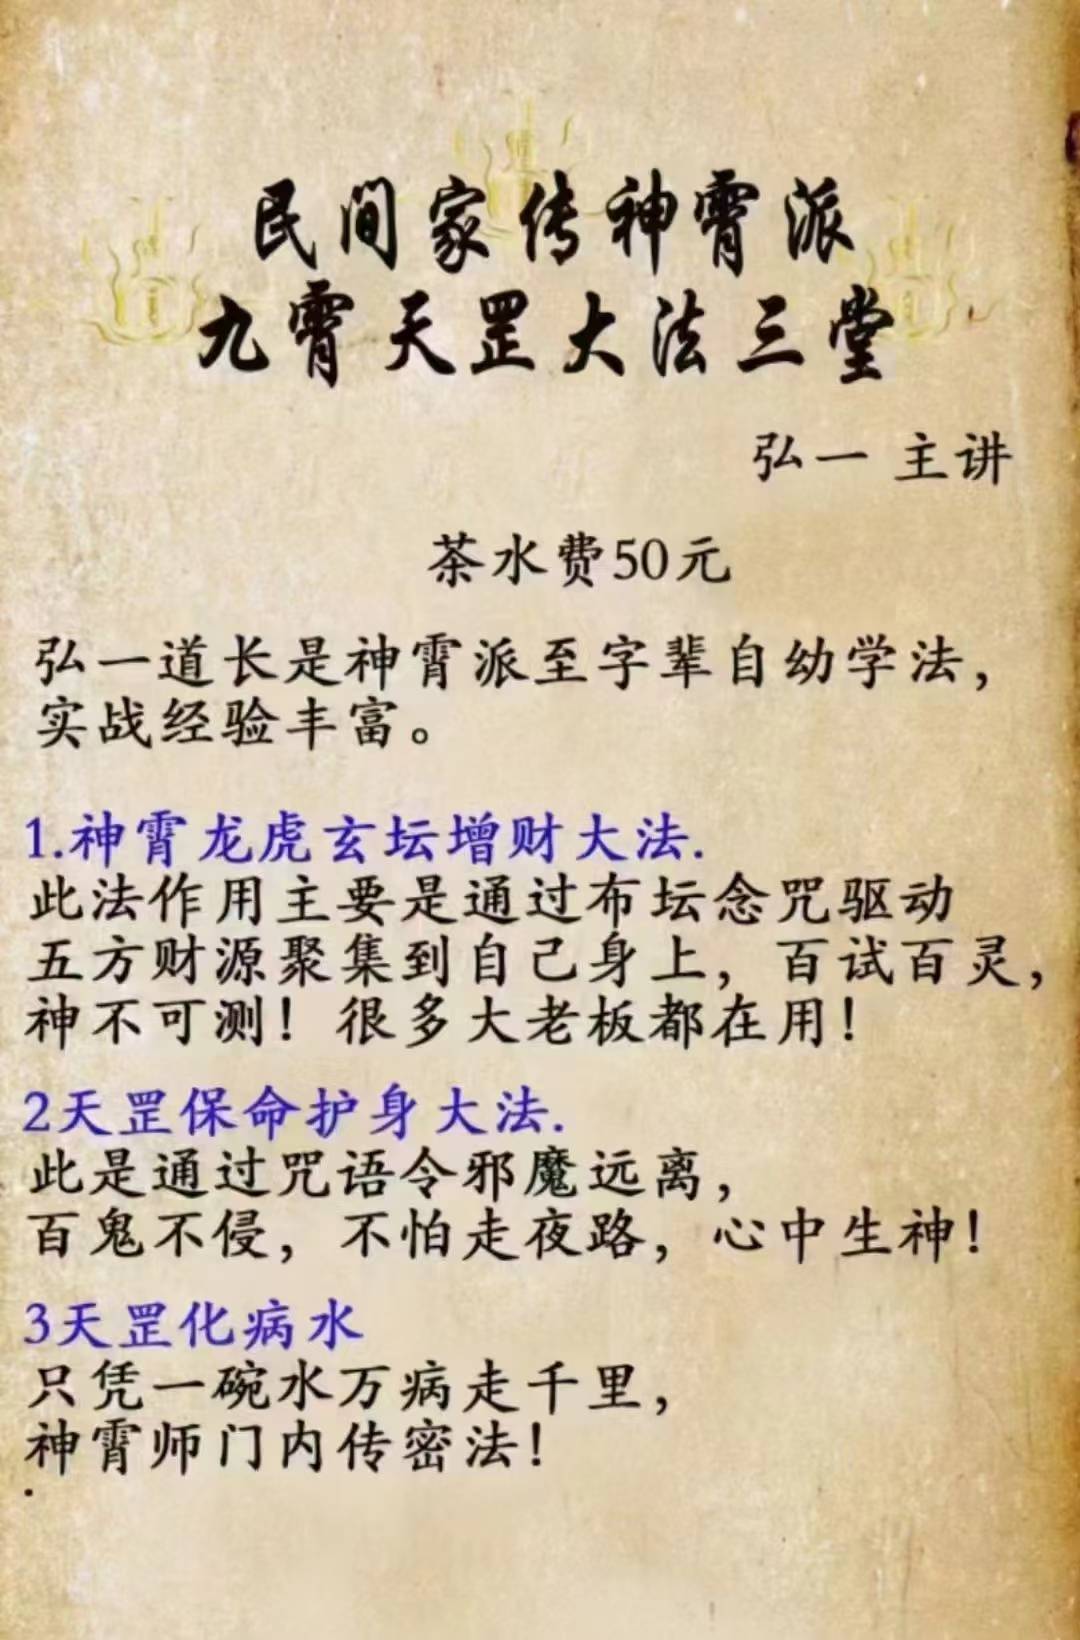 民间家传神霄派
九霄天罡大法三堂
弘一 主讲
茶水费50元
弘一道长是神霄派至字辈自幼学法，
实战经验丰富。
1.神霄龙虎玄坛增财大法.
此法作用主要是通过布坛念咒驱动
五方财源聚集到自己身上，百试百灵，
神不可测！很多大老板都在用！
2天罡保命护身大法.
此是通过咒语令邪魔远离，
百鬼不侵，不怕走夜路，心中生神！
3天罡化病水
只凭一碗水万病走千里，
神霄师门内传密法！
.